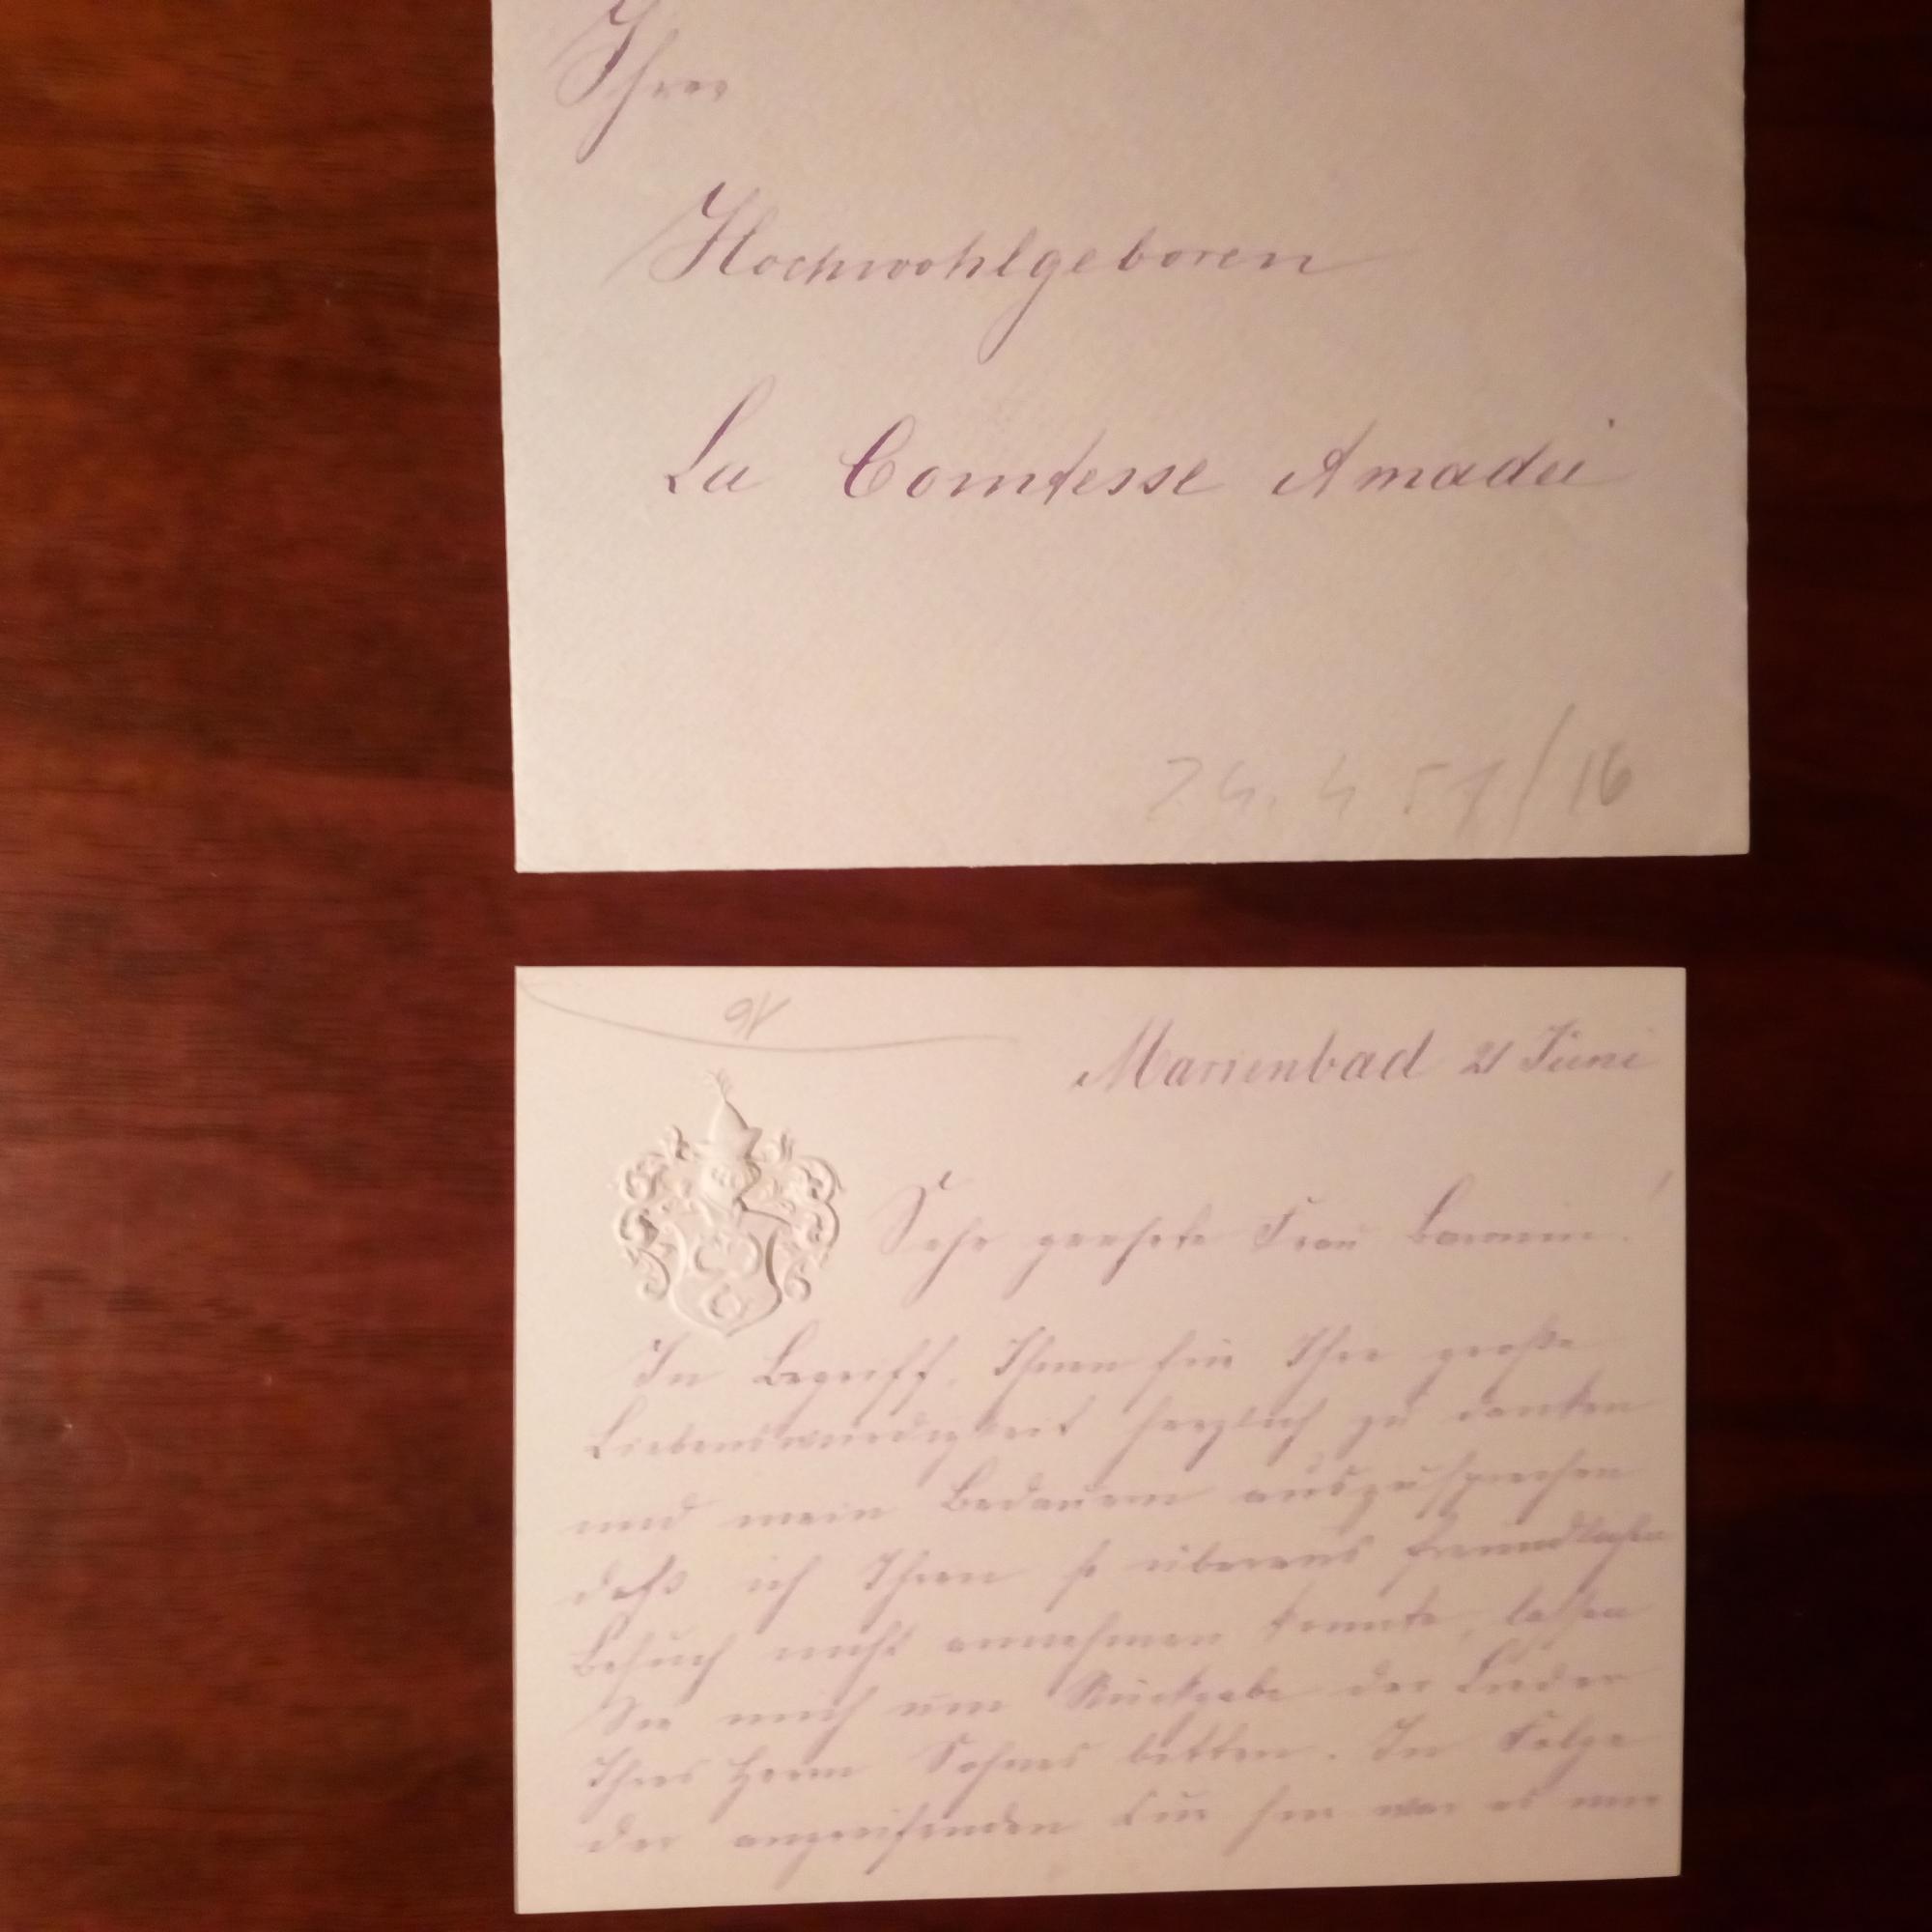 Ihrer
Hochwohlgeboren
La Comtesse Amadei
24.457/16
16
Marienbad 21 Juni
Sehr geehrte Frau Baronin!
Im Begriff, Ihnen für Ihre große
Liebenswürdigkeit herzlich zu danken
und mein Bedauern auszusprechen
daß ich Ihren so überaus freundlichen
Besuch nicht annehmen konnte, laßen
Sie mich um Rückgabe der Lieder
Ihres Herrn Sohnes bitten. In Folge
der angreifenden Cur hier war es mir